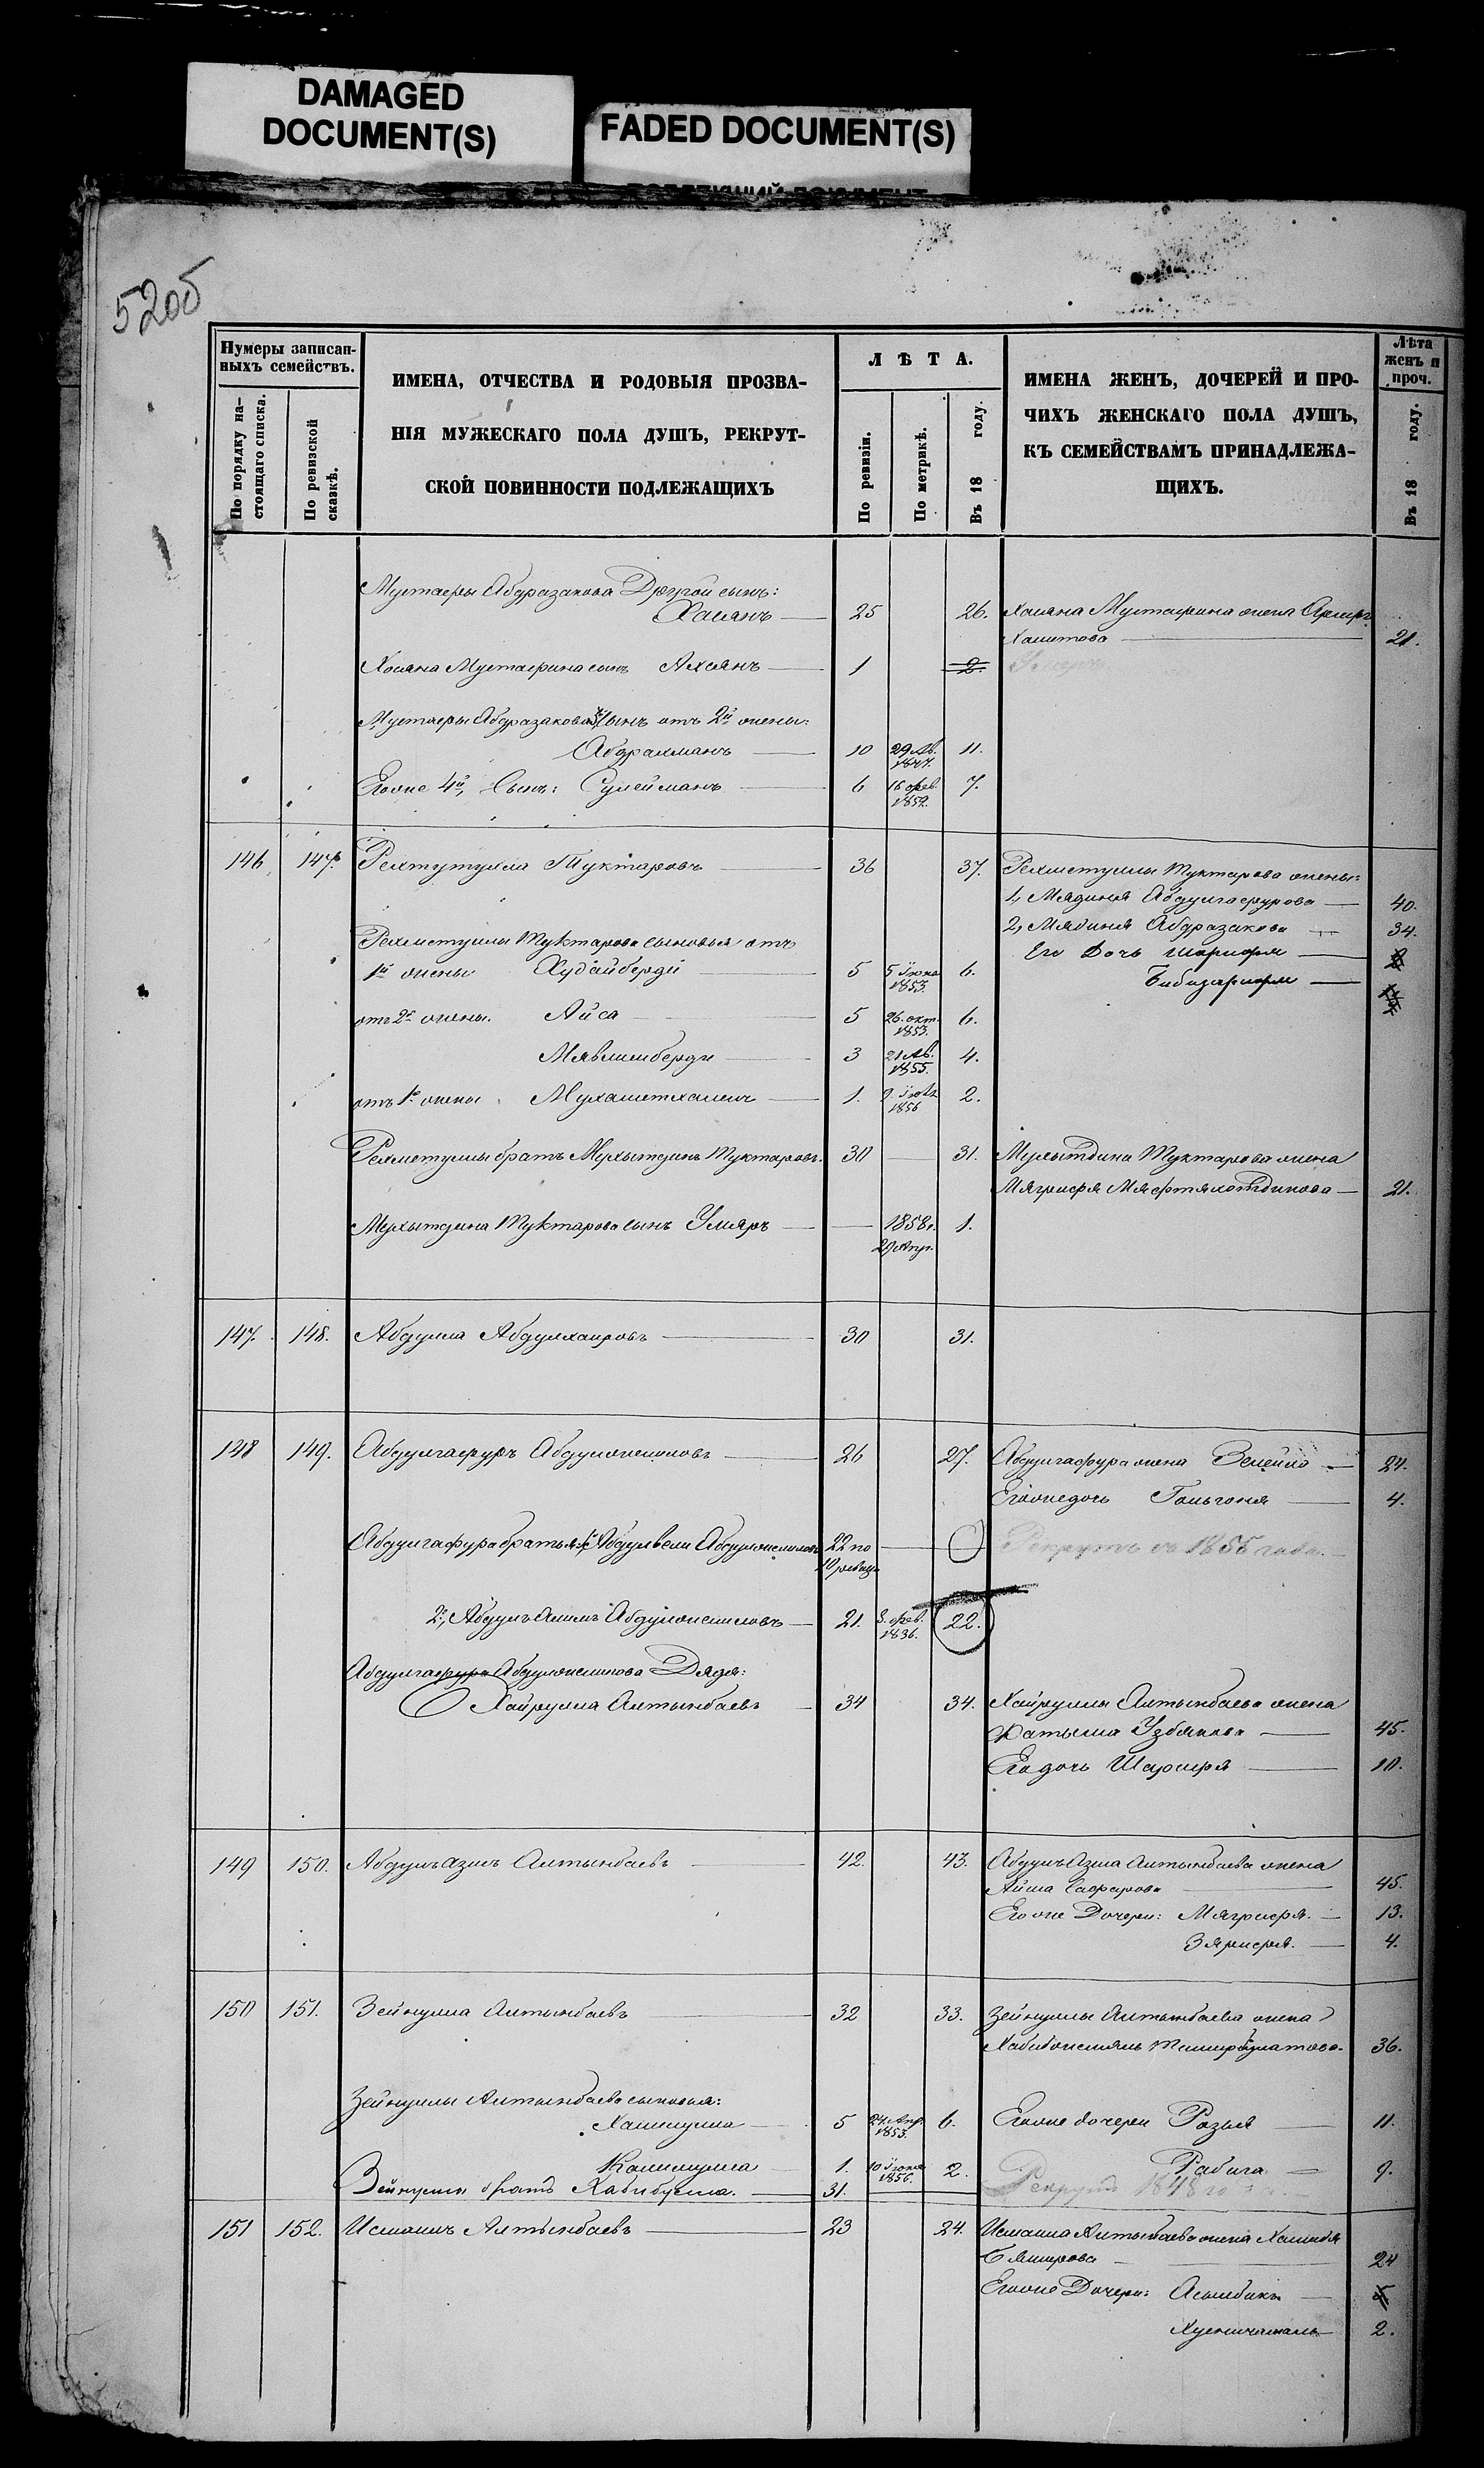 DAMAGED
DOCUMENT(S)
FADED DOCUMENT(S)
520б
Нумеры записан-
ныхъ семействъ.
По порядку на-
стоящаго списка.
По ревизской
сказкѣ.
ИМЕНА, ОТЧЕСТВА И РОДОВЫЯ ПРОЗВА-
НІЯ МУЖЕСКАГО ПОЛА ДУШЪ, РЕКРУТ-
СКОЙ ПОВИННОСТИ ПОДЛЕЖАЩИХЪ
ЛѢТА.
По ревизіи.
По метрикѣ.
Въ 18 году.
ИМЕНА ЖЕНЪ, ДОЧЕРЕЙ И ПРО-
ЧИХЪ ЖЕНСКАГО ПОЛА ДУШЪ,
КЪ СЕМЕЙСТВАМЪ ПРИНАДЛЕЖА-
ЩИХЪ.
Лѣта
женъ и
проч.
Въ 18 году.
Мустафы Абдразакова Другой сынъ:
Хасянъ 25 26. Хасяна Мустафина жена
Хаметова 21.
Хасяна Мустафина сынъ Ахсянъ 1 2. Умеръ
Мустафы Абдразакова сынъ отъ 2й жены:
Абдрахманъ 10 29 Ав. 1847. 11.
Егоже 4й, Сынъ: Сулейманъ 6 16 фев. 1852. 7.
146 147. Рехметулла Туктаровъ 36 37. Рехметуллы Туктарова жены:
1, Мядиня Абдулгафурова 40.
2, Мядиня Абдразакова 34.
Рехметуллы Туктарова сыновья отъ
Его Дочь Шарифя
1й жены Худайберди 5 5 Іюня 1853. 6.
Бибизарифя
отъ 2й жены. Айса 5 26 окт. 1853. 6.
Мявлимберди 3 21 Ав. 1855. 4.
отъ 1й жены Мухаметхалимъ 1. 1856 2.
Рехметуллы братъ Мухытдинъ Туктаровъ. 30 31. Мухытдина Туктарова жена
Мягрифя Мяфтяхотдинова 21.
Мухытдина Туктарова сынъ Умяръ 1858г. 29 Апр. 1.
147. 148. Абдулла Абдулхаировъ 30 31.
148 149. Абдулгафуръ Абдулжелиловъ 26 27. Абдулгафура жена 24.
Егожедочь 4.
Абдулгафура братья: 1, Абдулвели Абдулжелиловъ 22 по 10 ревиз. Рекрутъ въ 1855 года.
2, Абдулъ Алимъ Абдулжелиловъ 21. 8. фев. 1836. 22.
Абдулгафура Абдулжелилова Дядя:
Хайрулла Алтынбаевъ 34 34. Хайруллы Алтынбаева жена
Фатыма Узбякова 45.
Егодочь Шарифя 10.
149 150. Абдулъ Азисъ Алтынбаевъ 42. 43. Абдулъ Азиса Алтынбаева жена
Айша Сафарова 45.
Егоже Дочери: Мягрифя. 13.
Зярифя. 4.
150 151. Зейнулла Алтынбаевъ 32 33. Зейнуллы Алтынбаева жена
Хабибжемялъ Темирбулатова. 36.
Зейнуллы Алтынбаева сыновья:
Халиулла 5 24 Апр. 1853. 6. Егоже дочери Разыя 11.
Калимулла 1. 10 Іюня 1856. 2. Рабига 9.
Зейнуллы братъ Хабибулла. 31. Рекрутъ 1848 го
151 152. Исмаилъ Алтынбаевъ 23 24. Исмаила Алтынбаева жена Хамидя
Бямирова 24
Егоже Дочери: Асылбика
Хуснижамалъ 2.